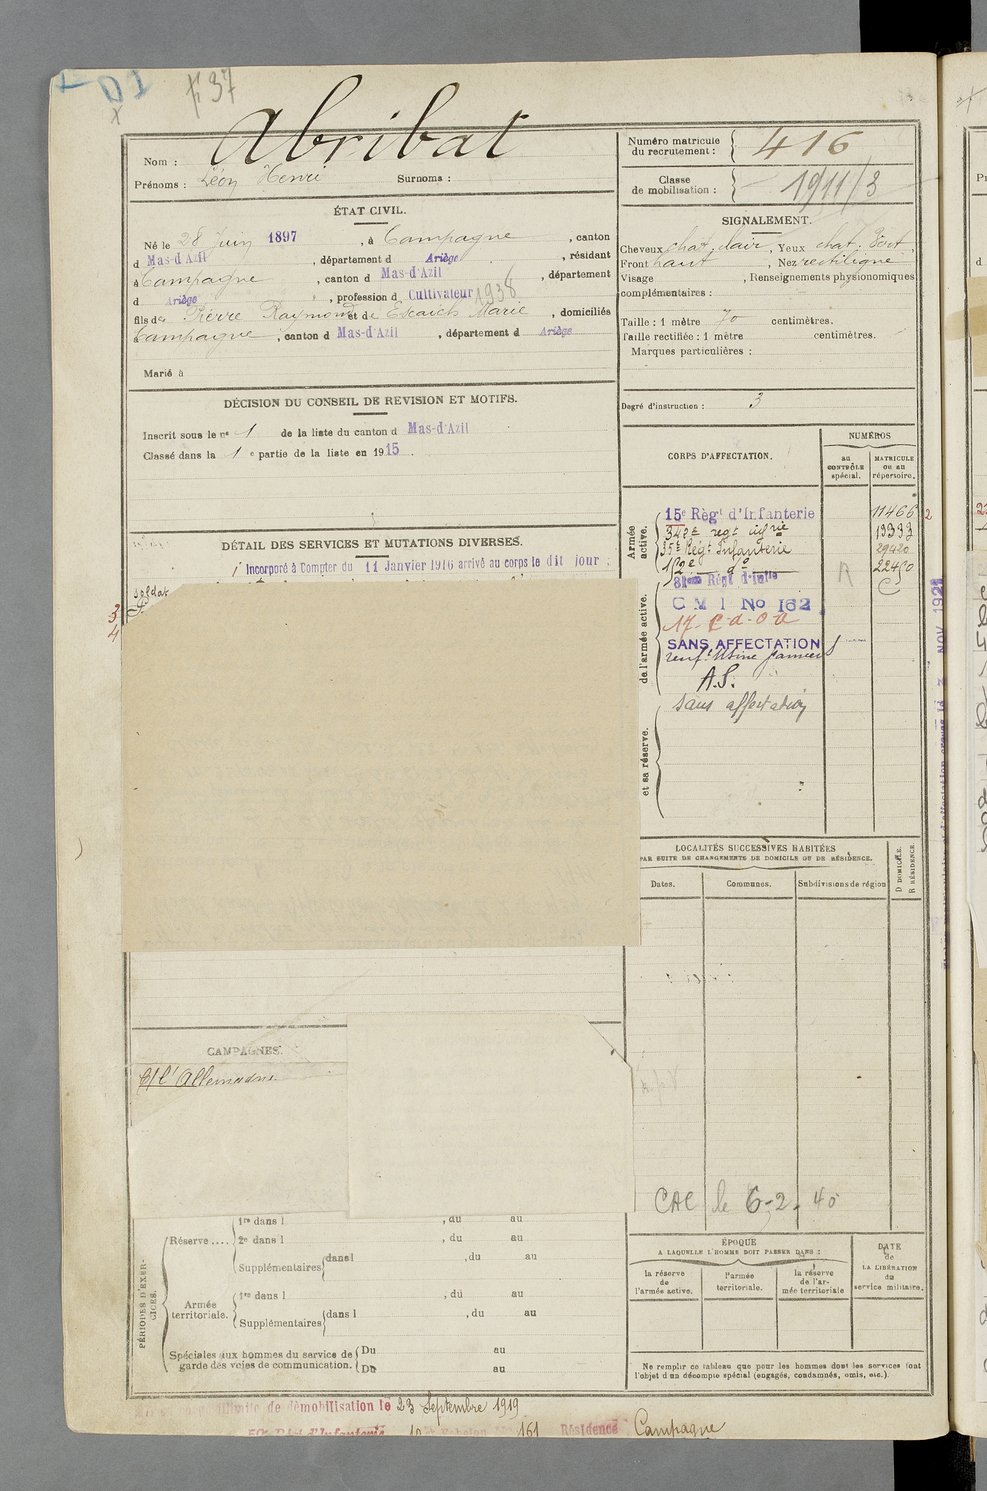 £ 37
Nom : Abribat
Prénoms : Léon Henri Surnoms :
Numéro matricule du recrutement : 416
Classe de mobilisation : 1911/3
ÉTAT CIVIL.
Né le 28 juin 1897, à Campagne, canton
d Mas-d'Azil, département d Ariège, résidant
à Campagne, canton d Mas-d'Azil, département
d Ariège, profession d Cultivateur 1938
fils de Pierre Raymond et de Escaich Marie, domiciliés
Campagne, canton d Mas-d'Azil, département d Ariège
Marié à
SIGNALEMENT.
Cheveux chat. clair, Yeux chat. vert,
Front haut, Nez rectiligne
Visage , Renseignements physionomiques
complémentaires :
Taille : 1 mètre 70 centimètres.
Taille rectifiée : 1 mètre centimètres.
Marques particulières :
Degré d'instruction : 3
DÉCISION DU CONSEIL DE REVISION ET MOTIFS.
Inscrit sous le nº 1 de la liste du canton d Mas-d'Azil
Classé dans la 1e partie de la liste en 1915.
DÉTAIL DES SERVICES ET MUTATIONS DIVERSES.
Incorporé à Compter du 11 Janvier 1916 arrivé au corps le dit jour :
soldat
3
4
CORPS D'AFFECTATION.
NUMÉROS
au CONTRÔLE spécial.
MATRICULE ou au répertoire.
Armée active.
de l'armée active.
et sa réserve.
15e Règt d'Infanterie 11466
342e regt infrie 19393
35e Régt Infanterie 29420
112e do 22450
81eme Régt d'infie
R
C M I No 162
17 C.O.A
SANS AFFECTATION
renft. Usine Pamiers
A.S.
sans affectation
LOCALITÉS SUCCESSIVES HABITÉES
PAR SUITE DE CHANGEMENTS DE DOMICILE OU DE RÉSIDENCE.
Dates.
Communes.
Subdivisions de région
D DOMICILE.
R RÉSIDENCE.
CAC le 6-2-40
CAMPAGNES.
C/ l'Allemagne
PÉRIODES D'EXERCICES.
Réserve .... 1re dans l , du au
2e dans l , du au
Supplémentaires dans l , du au
Armée territoriale. 1re dans l , du au
Supplémentaires dans l , du au
Spéciales aux hommes du service de Du au
garde des voies de communication. Du au
ÉPOQUE
A LAQUELLE L'HOMME DOIT PASSER DANS :
la réserve de l'armée active.
l'armée territoriale.
la réserve de l'armée territoriale
DATE de LA LIBÉRATION du service militaire.
Ne remplir ce tableau que pour les hommes dont les services font
l'objet d'un décompte spécial (engagés, condamnés, omis, etc.).
illimité de démobilisation le 23 Septembre 1919
d'Infanterie 161 Résidence Campagne
NOV 1921